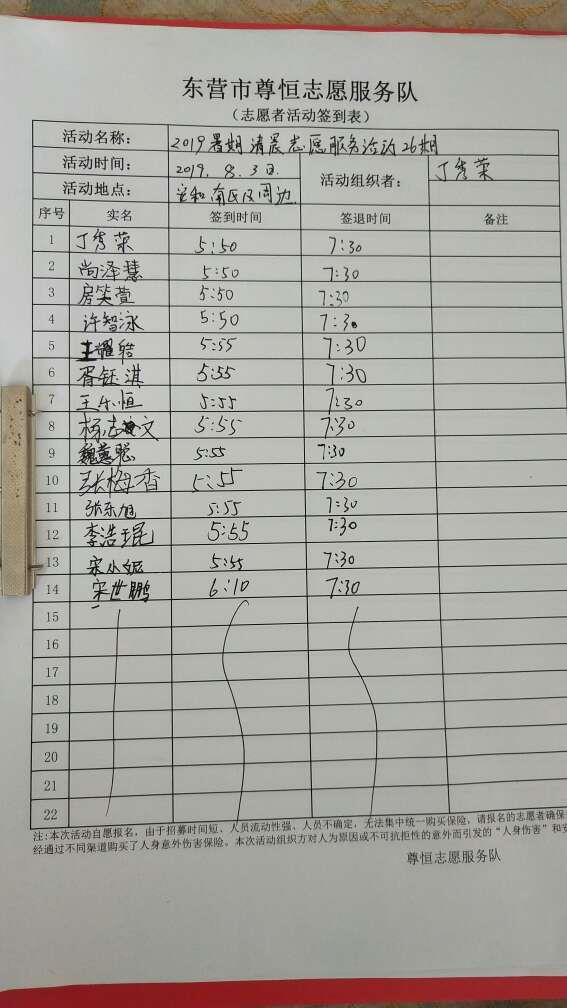 东营市尊恒志愿服务队
（志愿者活动签到表）
活动名称： 2019暑期清晨志愿服务活动26期
活动时间： 2019.8.3日. 活动组织者： 丁秀荣
活动地点： 南区及周边
序号 实名 签到时间 签退时间 备注
1 丁秀荣 5:50 7:30
2 尚泽慧 5:50 7:30
3 房笑萱 5:50 7:30
4 许智泳 5:50 7:30
5 王耀晗 5:55 7:30
6 胥钰淇 5:55 7:30
7 王乐恒 5:55 7:30
8 杨志文 5:55 7:30
9 魏蕙聪 5:55 7:30
10 张梅香 5:55 7:30
11 张东旭 5:55 7:30
12 李浩琨 5:55 7:30
13 宋小妮 5:55 7:30
14 宋世鹏 6:10 7:30
15
16
17
18
19
20
21
22
注:本次活动自愿报名，由于招募时间短、人员流动性强、人员不确定，无法集中统一购买保险，请报名的志愿者确保
经通过不同渠道购买了人身意外伤害保险。本次活动组织方对人为原因或不可抗拒性的意外而引发的“人身伤害”和
尊恒志愿服务队